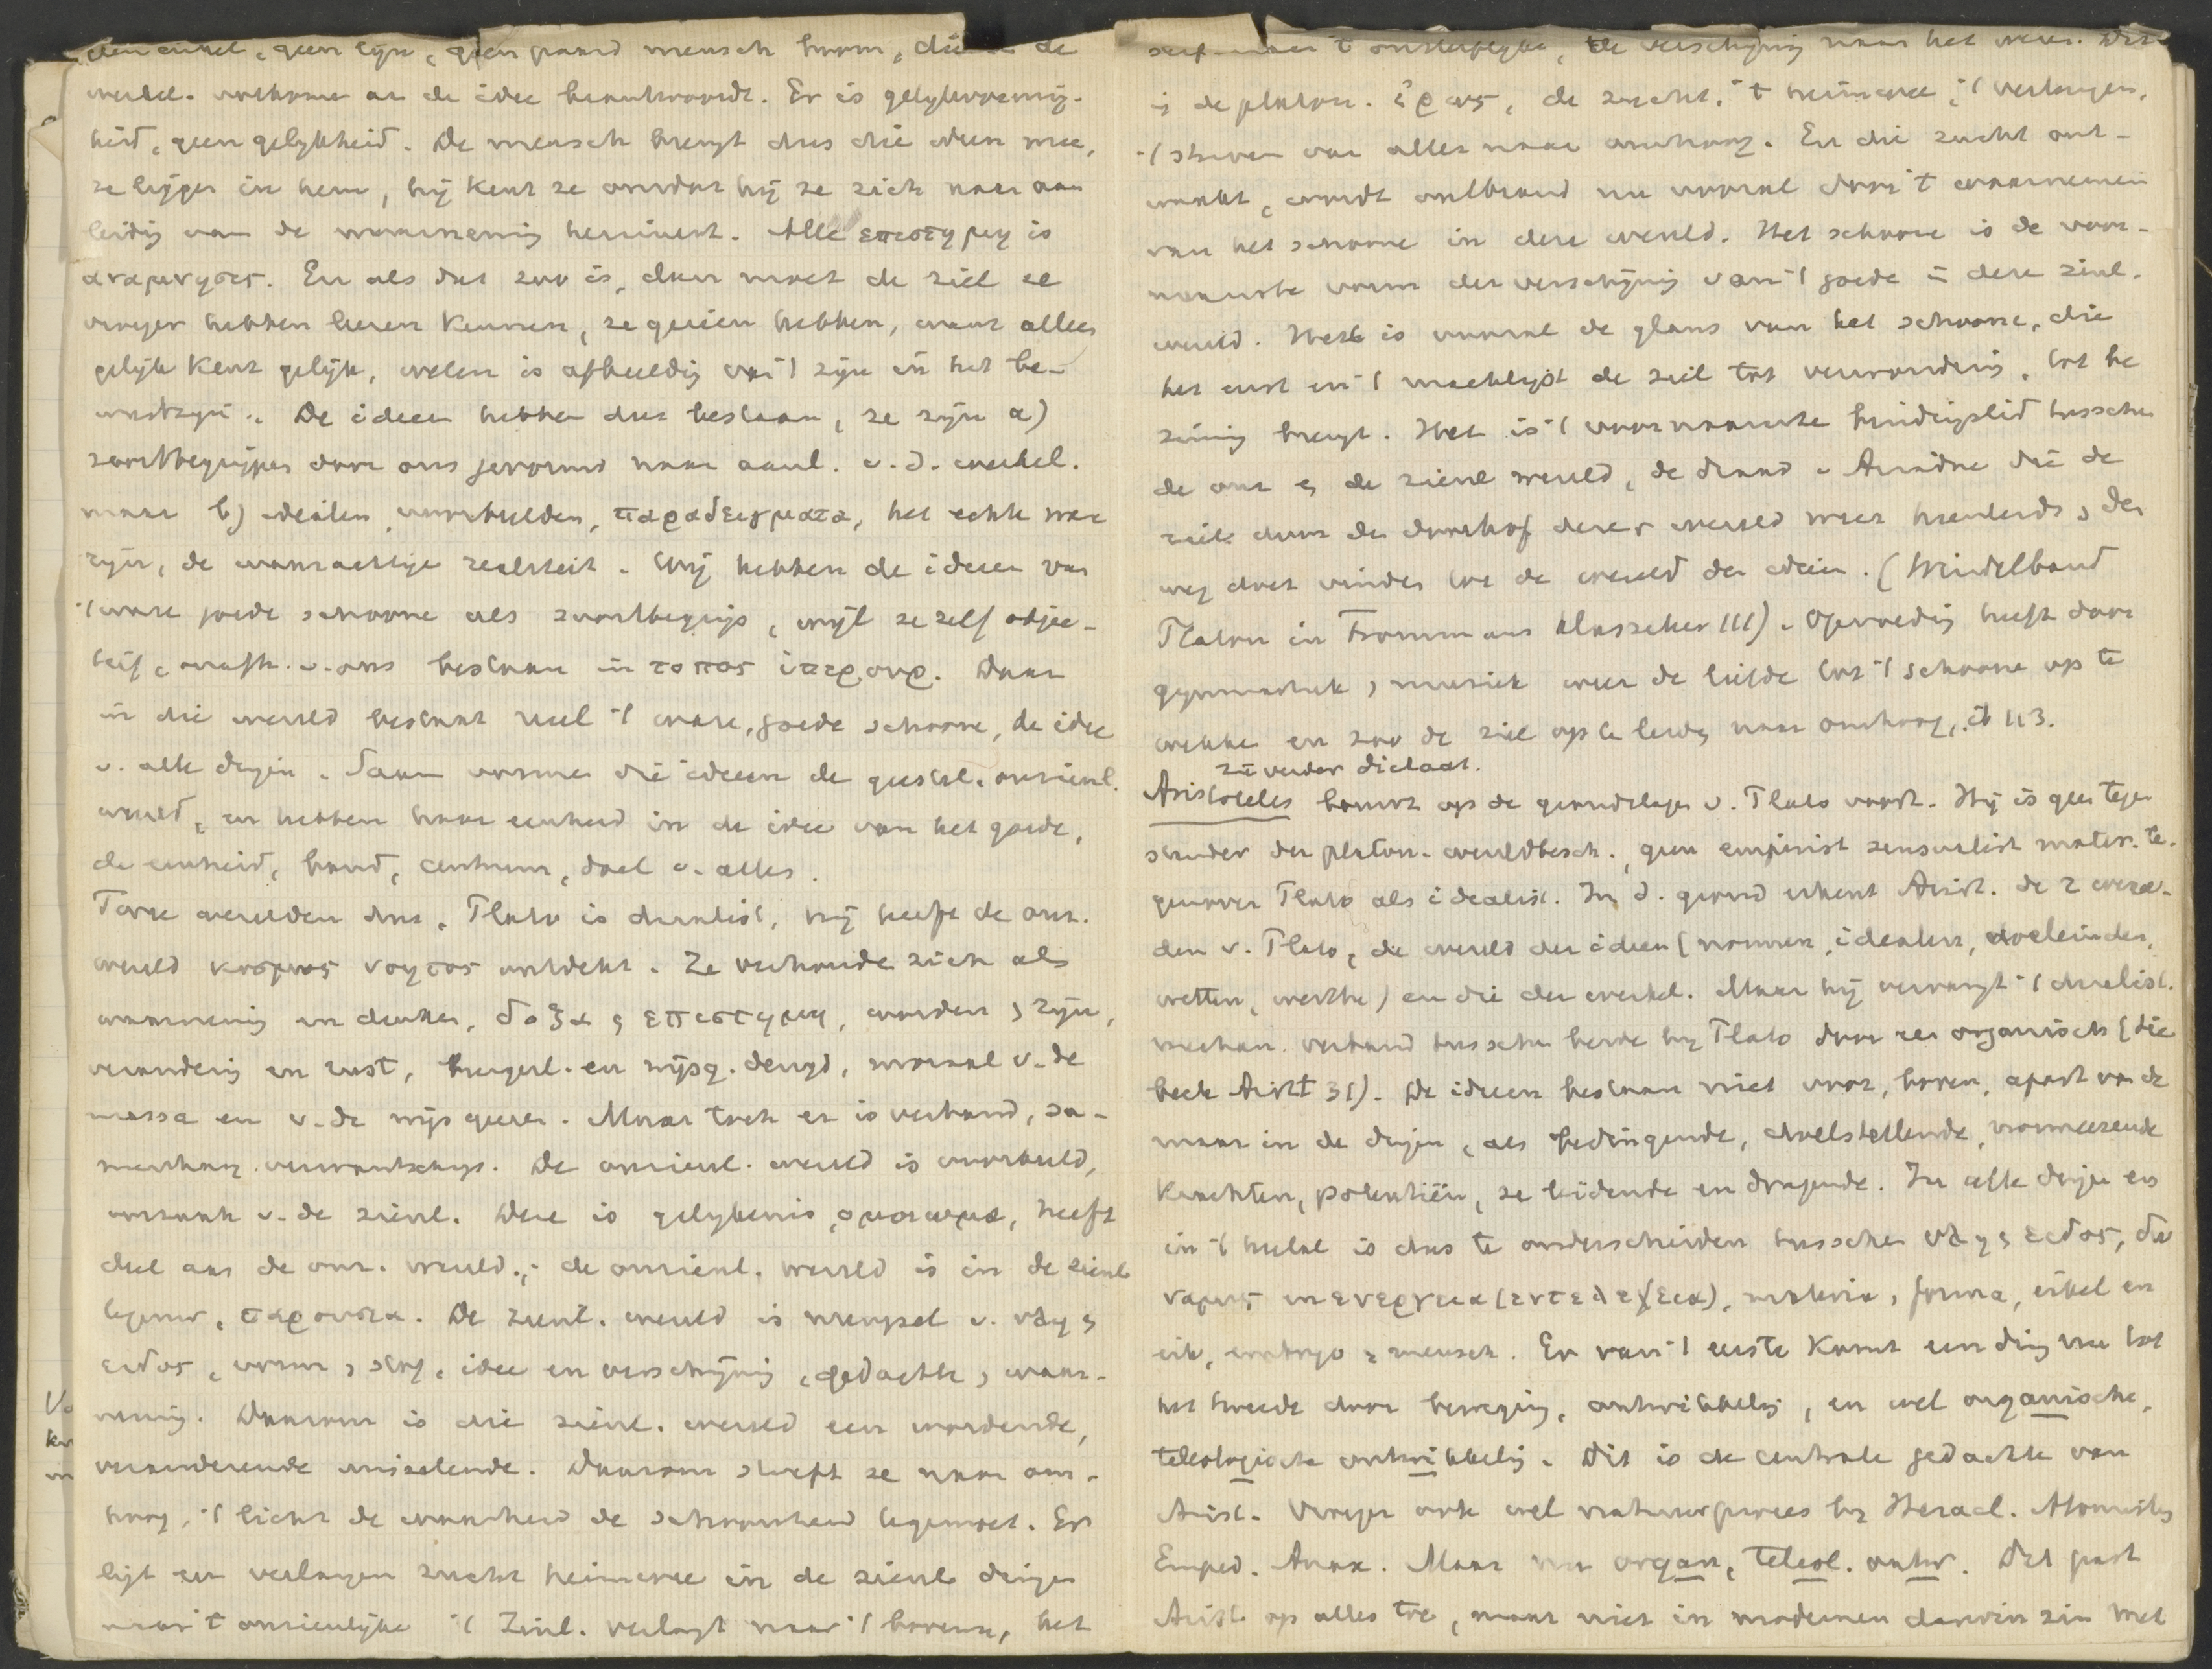 een cirkel, geen lyn, geen paard mensch boom, die in de
werkel. volkomen aan de idee beantwoordt. Er is gelykvormig-
heid, geen gelykheid. De mensch brengt dus die ideën mee,
ze liggen in hem, hij kent ze omdat hij ze zich naar aan
leidig van de waarneming herinnert. Alle επιστημη is
αναμνησις. En als dat zoo is, dan moet de ziel ze
vroeger hebben leeren kennen, ze gezien hebben, want alleen
gelijk kent gelijk, weten is afbeeldig van 't zijn in het be-
wustzijn. De ideeen hebben dus bestaan, ze zijn a)
soortbegrippen door ons gevormd naar aanl. v. d. werkel.
maar b) idealen, voorbeelden, παραδειγματα, het echte ware
zijn, de waarachtige realiteit. Wij hebben de ideeen van
't ware goede schoone als soortbegrip, wijl ze zelf objec-
tief, onafh. v. ons bestaan in τοπος ὑπερουρ. Daar
in die wereld bestaat reeel 't ware, goede schoone, de idee
v. alle dingen. Saam vormen die ideeen de geestel. onzienl.
wereld, en hebben haar eenheid in de idee van het goede,
de eenheid, band, centrum, doel v. alles.
Twee werelden dus. Plato is dualist, hij heeft de onz.
wereld κοσμος νοητος ontdekt. Ze verhouden zich als
waarneming en denken, δοξα en επιστημη, worden en zijn,
verandering en rust, burgerl. en wijsg. deugd, moraal v. de
massa en v. de wijsgeeren. Maar toch er is verband, sa-
menhang, verwantschap. De onzienl. wereld is voorbeeld,
oorzaak v. de zienl. Deze is gelykenis, ομοιωμα, heeft
deel aan de onz. wereld; de onzienl. wereld is in de zienl
tegenw., παρουσια. De zienl. wereld is mengsel v. υλη en
ειδος, vorm en stof, idee en verschijning, gedachte en waar-
neming. Daarom is die zienl. wereld een wordende,
veranderende wisselende. Daarom streeft ze naar om-
hoog, 't licht de waarheid de schoonheid tegemoet. Er
ligt een verlangen zucht heimwee in de zienl. dingen
naar 't onzienlijke 't Zienl. verlangt naar 't hoogere, het
naar 't onsterfelyke, de verschijning naar het wezen. Dit
is de platon. ἐρως, de zucht, 't heimwee, 't verlangen,
't streven van alles naar omhoog. En die zucht ont-
waakt, wordt ontbrand nu vooral door 't waarnemen
van het schoone in deze wereld. Het schoone is de voor-
naamste vorm der verschijning van 't goede in deze zienl.
wereld. Het is vooral de glans van het schoone, die
het eerst en 't machtigst de ziel tot verwondering, tot be
zinning brengt. Het is 't voornaamste bindingslid tusschen
de onz en de zienl wereld, de draad v Ariadne die de
ziel door den doolhof dezer wereld weer heenleidt en den
weg doet vinden tot de wereld der ideeën. (Windelband
Platon in Frommans Klassiker III). Opvoeding heeft door
gymnastiek en muziek weer de liefde tot 't schoone op te
wekken en zoo de ziel op te leiden naar omhoog, ib 113.
zie verder dictaat.
Aristoteles bouwt op de grondslagen v. Plato voort. Hij is geen tegen
stander der platon. wereldbesch., geen empirist sensualist mater. te-
genover Plato als idealist. In d. grond erkent Arist. de 2 werel-
den v. Plato, de wereld der ideen (normen, idealen, doeleinden,
wetten, werthe) en die der werkel. Maar hij vervangt 't dualist.
mechan. verband tusschen beide by Plato door een organisch (Sie
beck Arist 31). De ideeen bestaan niet voor, boven, apart van de
maar in de dingen, als bedingende, doelstellende, normeerende
krachten, potentiën, ze leidende en dragende. In elk ding en
in 't heelal is dus te onderscheiden tusschen υλη en ειδος, δυ
ναμις en ενεργεια (εντελεχεια), materia en forma, eikel en
eik, embryo en mensch. En van 't eerste komt een ding nu tot
het tweede door beweging, ontwikkeling, en wel organische,
teleologische ontwikkeling. Dit is de centrale gedachte van
Arist. Vroeger ook wel natuurproces by Heracl. Atomisten
Emped. Anax. Maar nu organ, teleol. ontw. Dit past
Arist. op alles toe, maar niet in modernen darwin zin Met